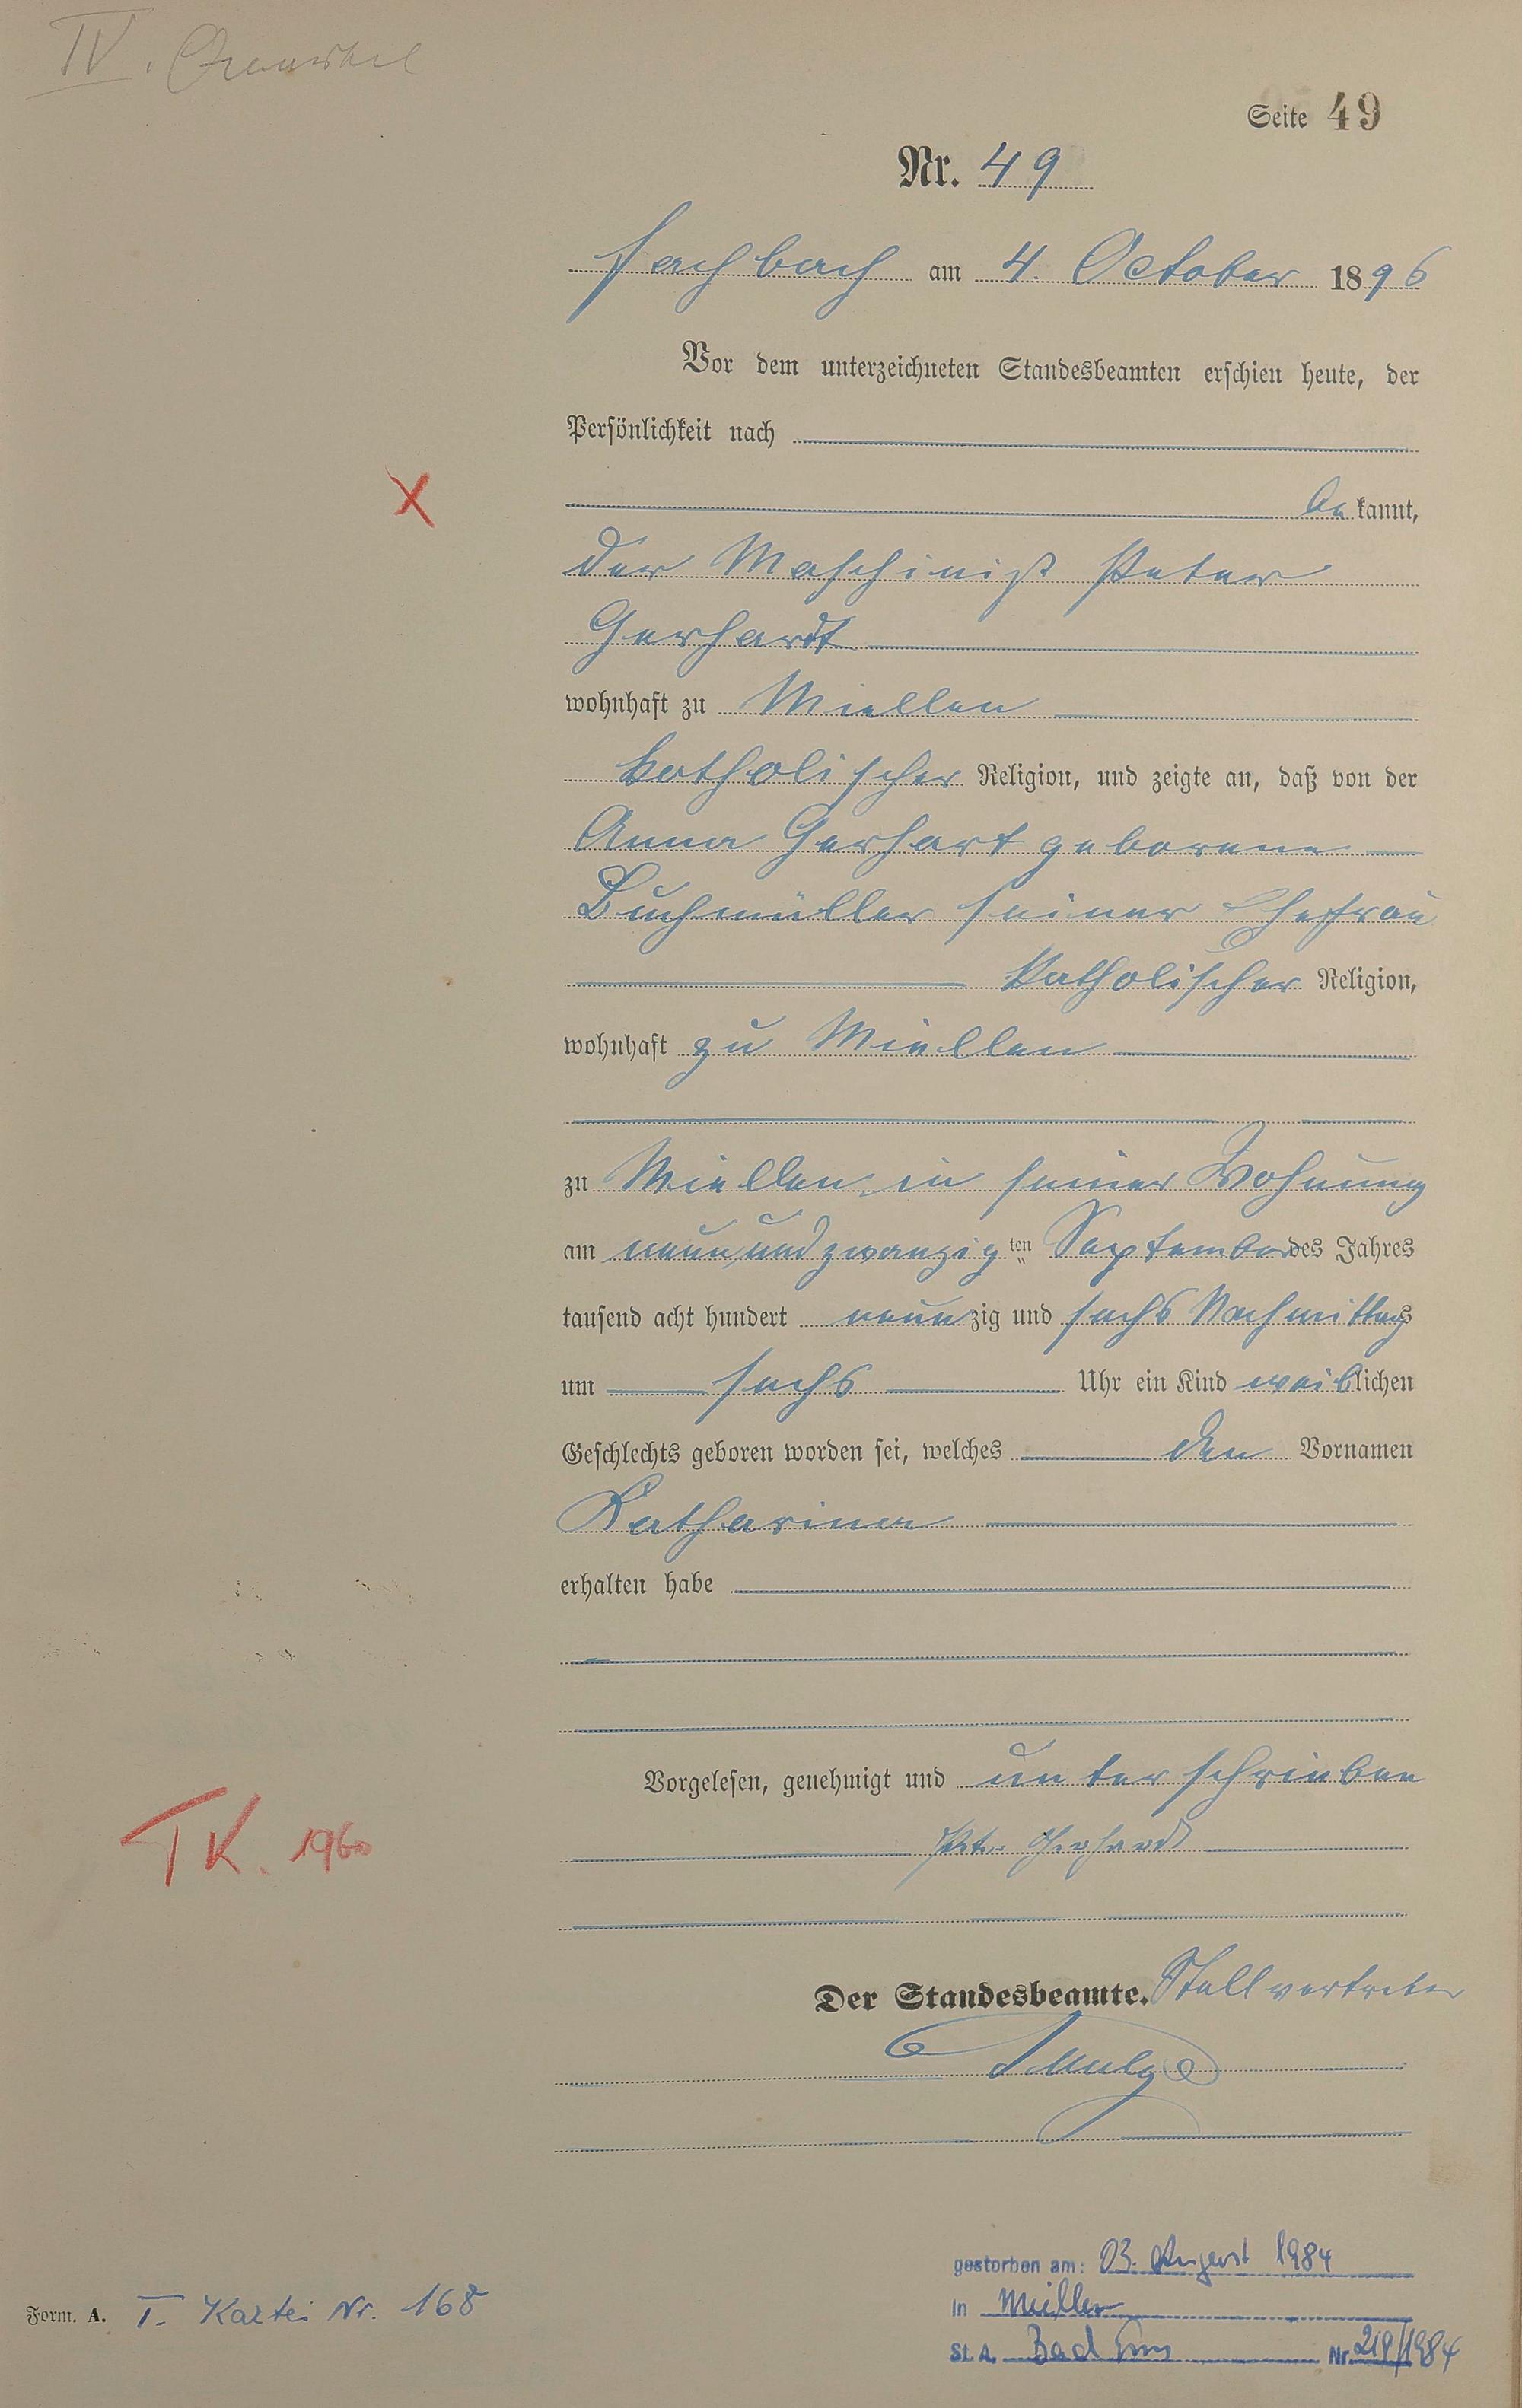 IV. Quartal
Seite 49
Nr. 49
Fachbach am 4. October 1896
Vor dem unterzeichneten Standesbeamten erschien heute, der
Persönlichkeit nach
be kannt,
der Maschinist Peter
Gerhardt
wohnhaft zu Miellen
katholischer Religion, und zeigte an, daß von der
Anna Gerhart geborene
Buchmüller seiner Ehefrau
katholischer Religion,
wohnhaft zu Miellen
zu Miellen in seiner Wohnung
am neunundzwanzig ten September des Jahres
tausend acht hundert neunzig und sechs Nachmittags
um sechs Uhr ein Kind weiblichen
Geschlechts geboren worden sei, welches den Vornamen
Katharina
erhalten habe
Vorgelesen, genehmigt und unterschrieben
Peter Gerhardt
TK. 1960
Der Standesbeamte. Stellvertreter
gestorben am: 03. August 1984
in Miellen
St. A. Bad Ems Nr. 218/1984
Form. A. T. Kartei Nr. 168